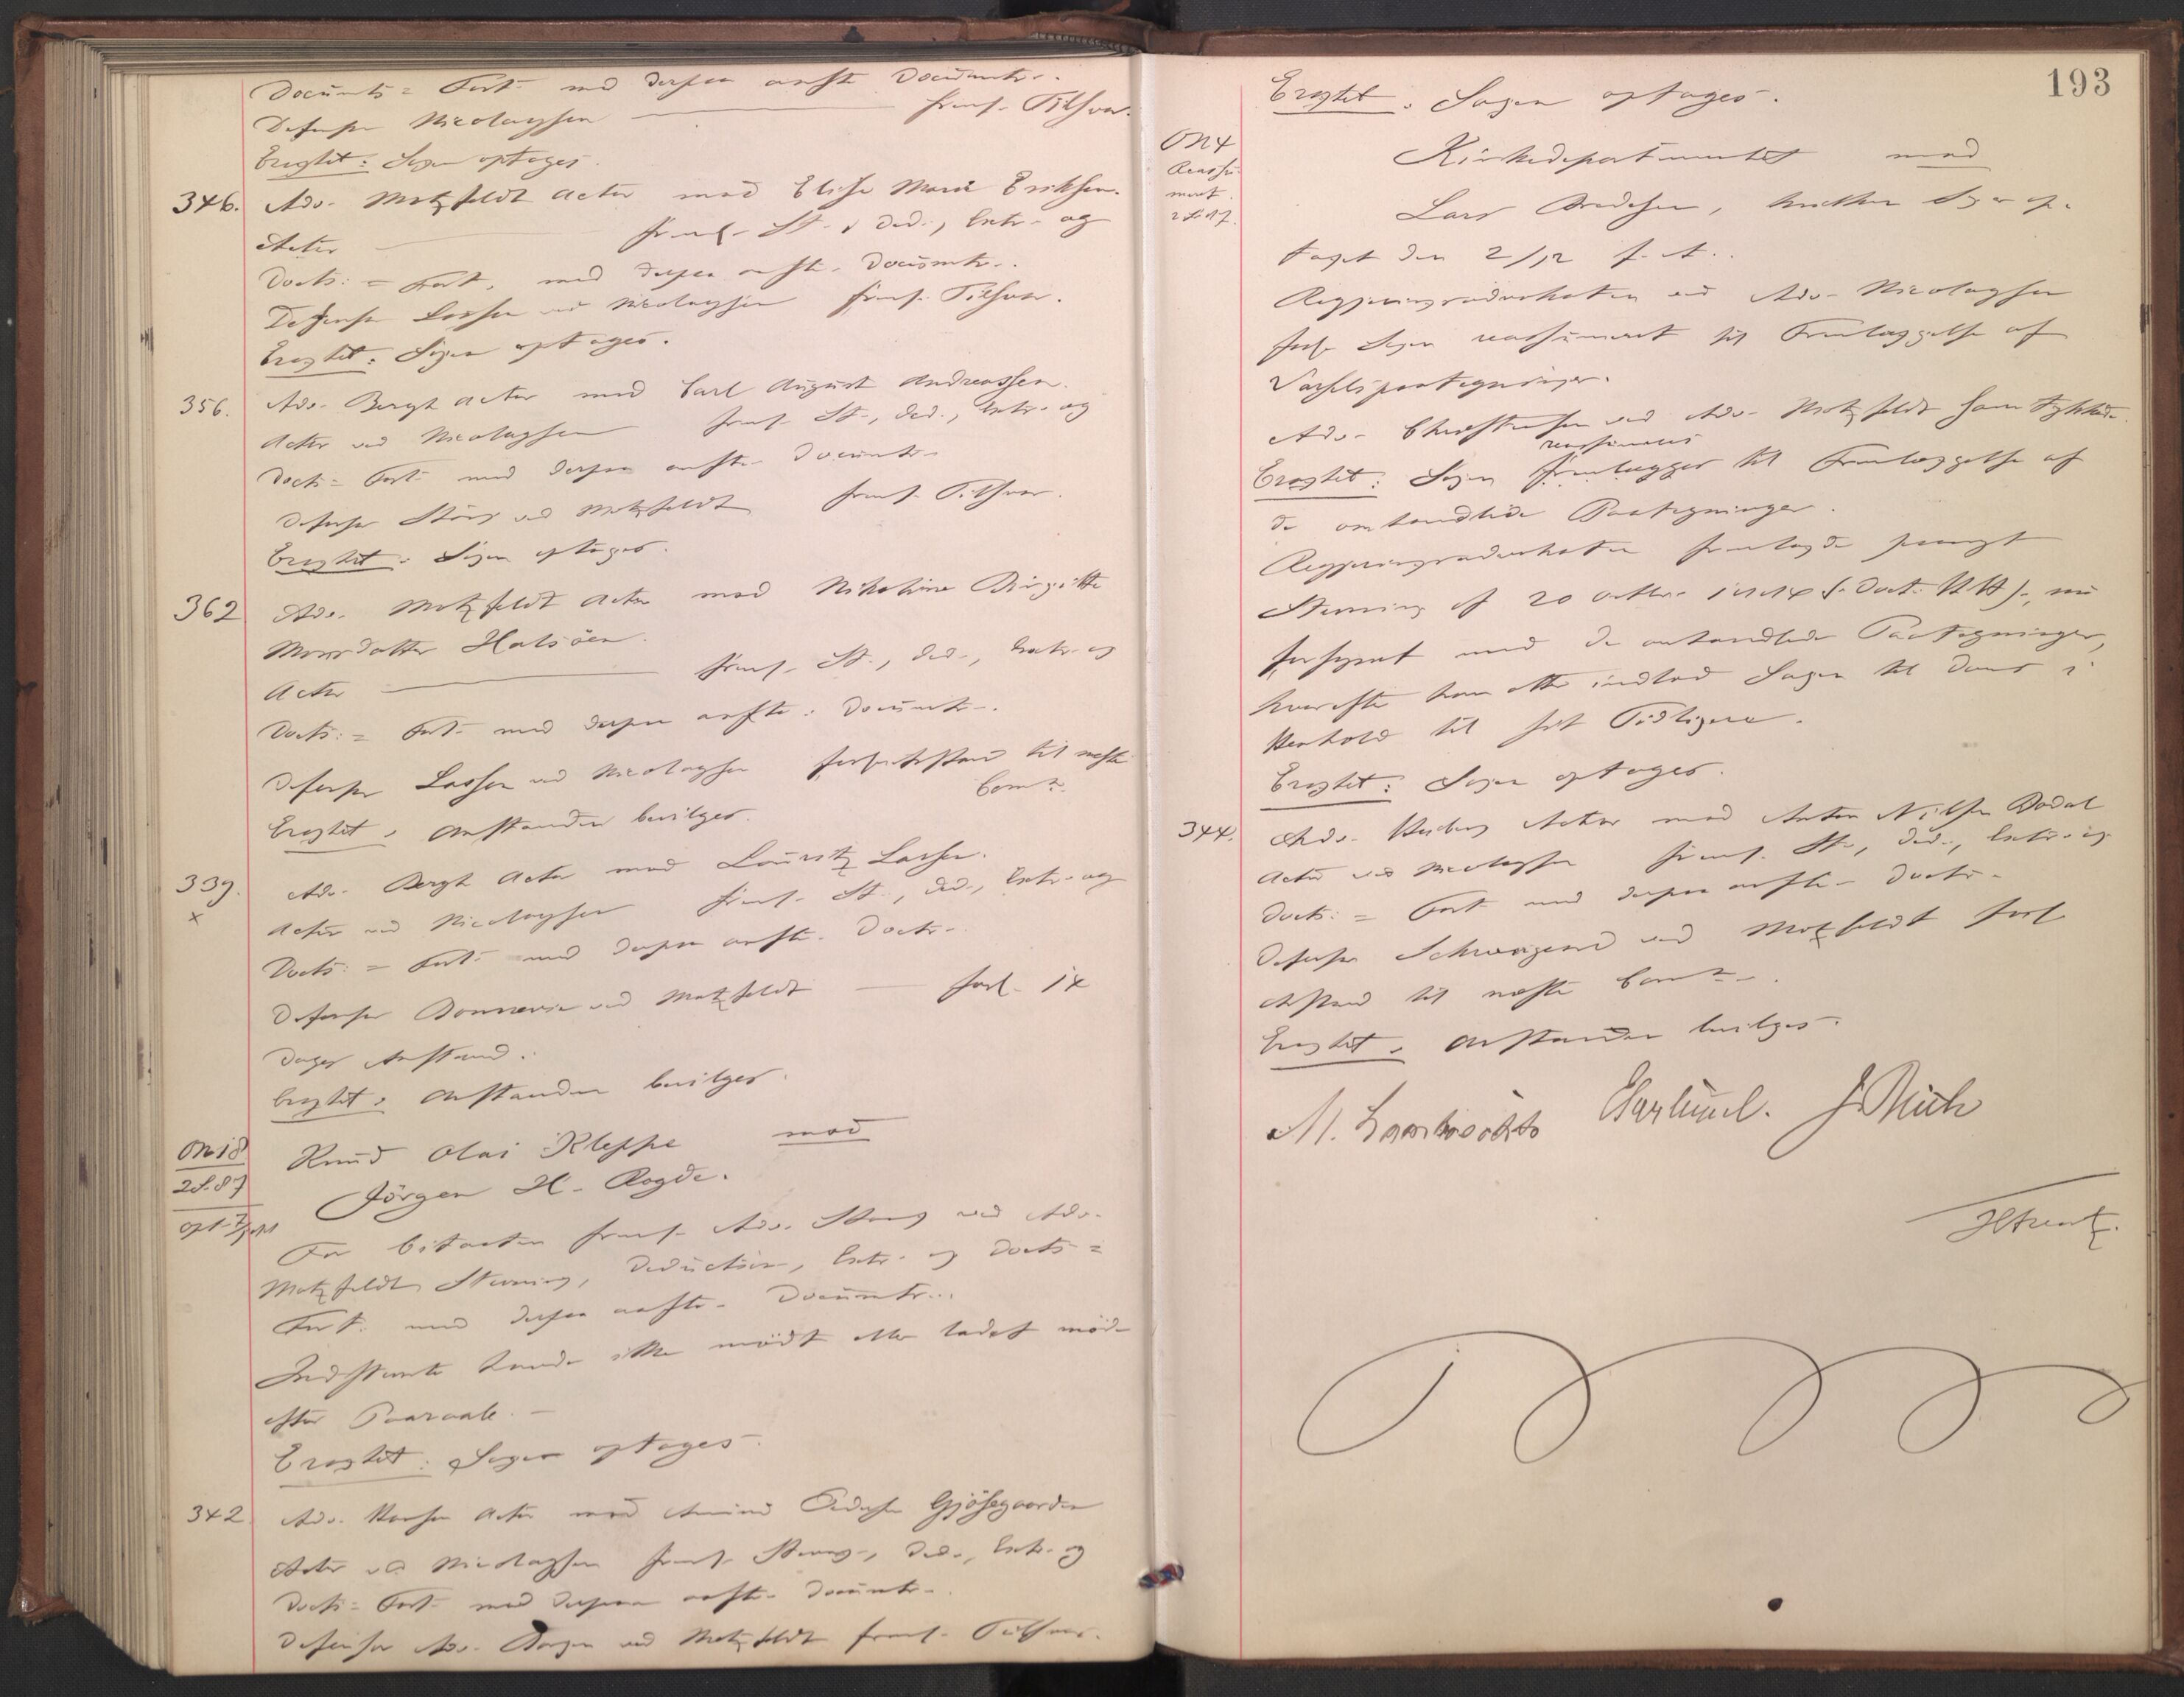 Documts = Fort. med derpaa anfte Documenter.
Defensor Nicolaysen — freml. Tilsvar.
Eragtet: Sagen optages.
346. Adv. Motzfeldt Actor mod Elise Marie Eriksen.
Actor — freml. St., Ded., Extr. og
Docts: = Fort. med derpaa anfte. Documtr.
Defensor Lassen ved Nicolaysen freml. Tilsvar.
Eragtet: Sagen optages.
356. Adv. Bergh Actor mod Carl August Andreassen.
Actor ved Nicolaysen freml. St., Ded., Extr. og
Docts = Fort. med derpaa anfte. Documtr.
Defensor Stang ved Motzfeldt freml. Tilsvar.
Eragtet: Sagen optages.
362 Adv. Motzfeldt Actor mod Nikoline Birgitte
Monsdatter Halsöen.
Actor — freml. St., Ded., Extr. og
Docts: = Fort. med derpaa anfte. Documtr.
Defensor Lassen ved Nicolaysen forl. Anstand til næste
Eragtet: Anstanden bevilges.
339. Adv. Bergh Actor mod Lauritz Larsen.
x
Actor ved Nicolaysen freml. St., Ded., Extr. og
Docts: = Fort. med derpaa anfte. Doctr.
Defensor Bonnevie ved Motzfeldt — forl. 14
Dages Anstand.
Eragtet: Anstanden bevilges.
No 18
2 S. 87
Knud Olai Kleppe mod
Jörgen H. Rogde.
For Citanten freml. Adv. Stang ved Adv.
Motzfeldt Stevning, Deduction, Extr. og Docts =
Fort. med derpaa anfte. Documtr.
Indstevnte havde ikke mödt eller ladet möde
efter Paaraab. —
Eragtet: Sagen optages.
342. Adv. Hansen Actor mod Amund Pedersen Gjösegaarden
Actor ved Nicolaysen freml. Stevng., Ded., Extr. og
Docts = Fort. med derpaa anfte. Documtr.
Defensor Adv. ved Motzfeldt freml. Tilsvar.
193
Eragtet: Sagen optages.
No 4
Reassu-
meret
2 S. 87.
Kirkedepartementet mod
Lars Bredesen, hvilken Sag er op-
taget den 2/12 f. A.
Regjeringsadvokaten ved Adv. Nicolaysen
forl. Sagen reassumeret til Fremlæggelse af
Varselspaategninger.
Adv. Christensen ved Adv. Motzfeldt samtykkede.
reassumeres
Eragtet: Sagen fremlægges til Fremlæggelse af
de omhandlede Paategninger.
Regjeringsadvokaten fremlagde paany
Stevning af 20 Octbr. 1884, nu
forsynet med de omhandlede Paategninger,
hvorefter han atter indlod Sagen til Doms i
Henhold til sit Tidligere.
Eragtet: Sagen optages.
344. Adv. Actor mod Anton Nilsen Dodal
Actor ved Nicolaysen freml. St., Ded., Extr. og
Docts: = Fort. med derpaa anfte. Doctr.
Defensor Schweigaard ved Motzfeldt forl.
Anstand til næste
Eragtet: Anstanden bevilges.
M. Lambrechts